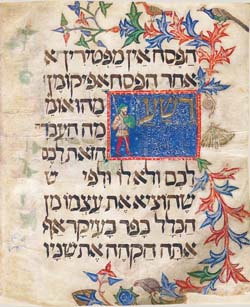 הפסח אין מפטירין א
אחר הפסח אפיקומן
רשע
מהואומ
מה העבוד
הזאת לכם
לכם ולא לו ולפי ש
שהוציא את עצמו מן
הכלל כפר בעיקר אף
אתה הקהה את שניו